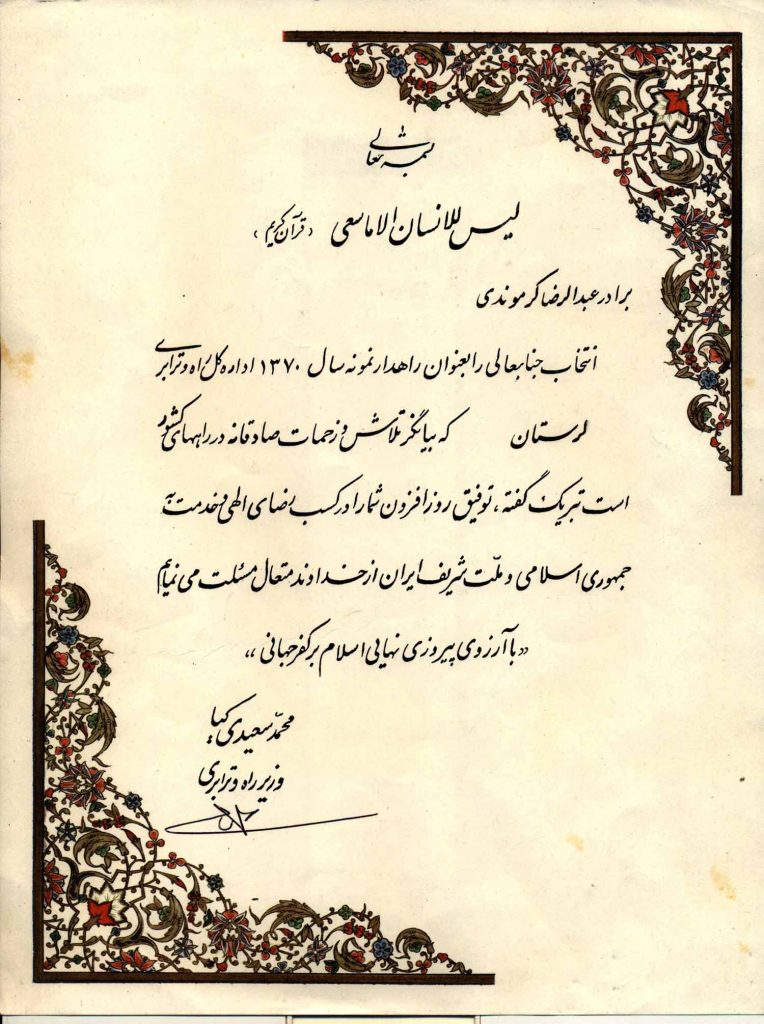 بسمه تعالی
لیس للانسان الا ماسعی (قرآن کریم)
برادر عبدالرضا کرموندی
انتخاب جنابعالی را بعنوان راهدار نمونه سال ۱۳۷۰ اداره کل راه و ترابری
لرستان که بیانگر تلاش و زحمات صادقانه در راههای کشور
است تبریک گفته، توفیق روز افزون شما را در کسب رضای الهی و خدمت به
جمهوری اسلامی و ملّت شریف ایران از خداوند متعال مسئلت می نمایم
«با آرزوی پیروزی نهایی اسلام بر کفر جهانی»
محمّد سعیدی کیا
وزیر راه و ترابری